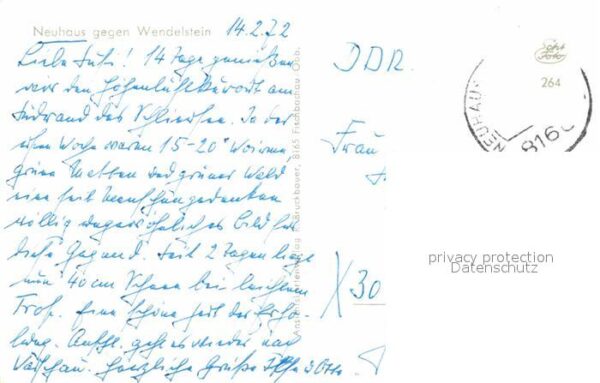 Neuhaus gegen Wendelstein 14.2.72
Liebe Susi! 14 Tage genießen
wir den Höhenluftkurort am
Südrand des Schliersees. In der
ersten Woche waren 15-20° Wärme,
grüne Matten und grüner Wald,
eine seit Menschengedenken
völlig ungewöhnliches Bild für
diese Gegend. Seit 2 Tagen liegt
nun 40 cm Schnee bei leichtem
Frost. Eine schöne Zeit der Erho-
lung. geht es wieder nach
Herzliche Grüße Otto
DDR.
Frau
X 30
NEUHAUS
8166
Foto
264
8165 Fischbachau Obb.
privacy protection
Datenschutz